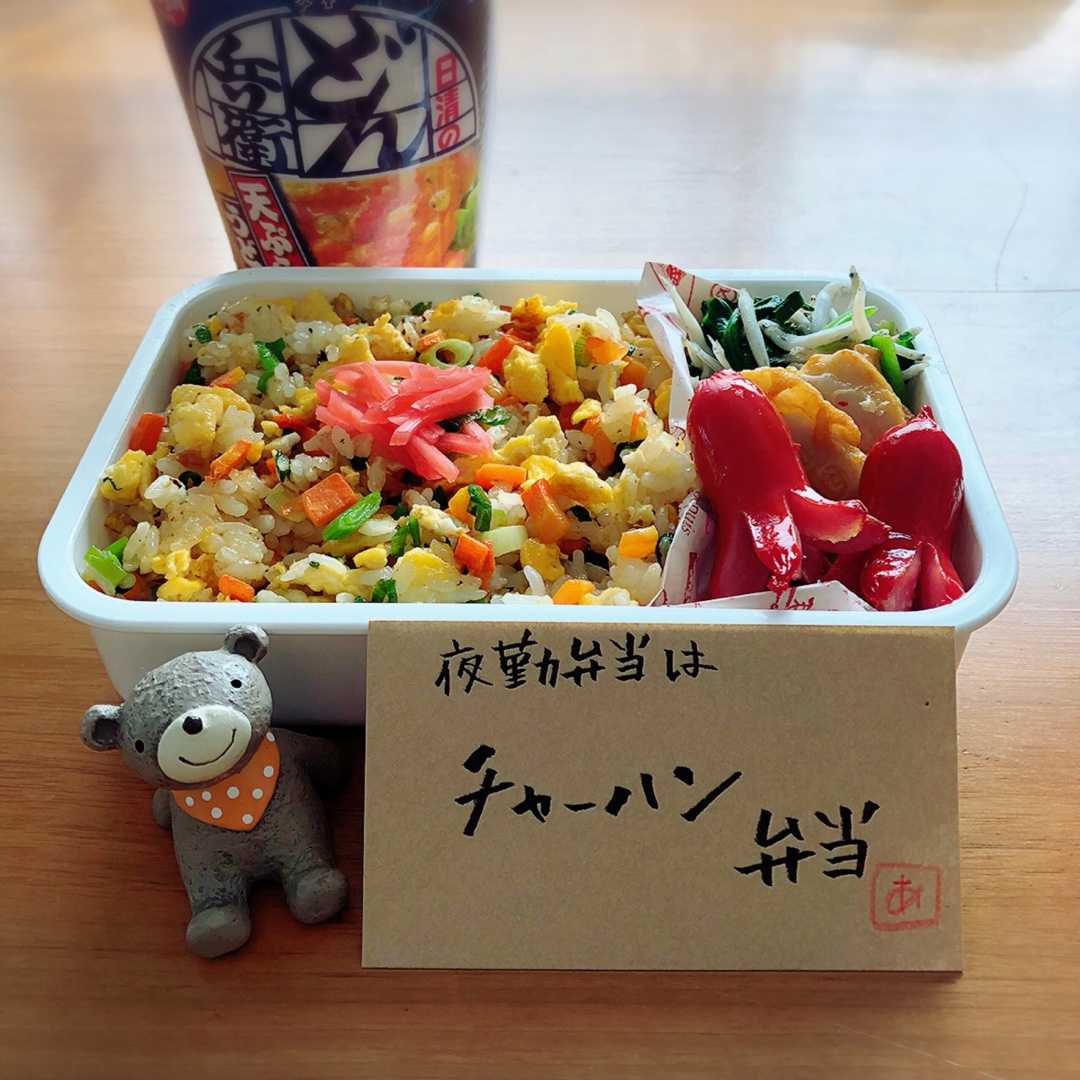 日清の
どん
兵衛
天ぷら
うどん
夜勤弁当は
チャーハン
弁当
あ